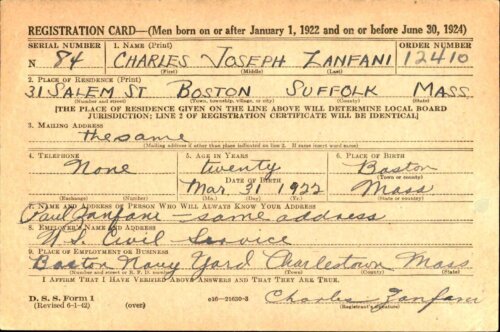 REGISTRATION CARD—(Men born on or after January 1, 1922 and on or before June 30, 1924)
SERIAL NUMBER 1. NAME (Print) ORDER NUMBER
N 84 CHARLES JOSEPH ZANFANI 12410
(First) (Middle) (Last)
2. PLACE OF RESIDENCE (Print)
31 SALEM ST BOSTON SUFFOLK MASS.
(Number and street) (Town, township, village, or city) (County) (State)
[THE PLACE OF RESIDENCE GIVEN ON THE LINE ABOVE WILL DETERMINE LOCAL BOARD
JURISDICTION; LINE 2 OF REGISTRATION CERTIFICATE WILL BE IDENTICAL]
3. MAILING ADDRESS
the same
[Mailing address if other than place indicated on line 2. If same insert word same]
4. TELEPHONE 5. AGE IN YEARS 6. PLACE OF BIRTH
None twenty Boston
DATE OF BIRTH (Town or county)
Mar. 31 1922 Mass
(Exchange) (Number) (Mo.) (Day) (Yr.) (State or country)
7. NAME AND ADDRESS OF PERSON WHO WILL ALWAYS KNOW YOUR ADDRESS
Paul Zanfani — same address
8. EMPLOYER'S NAME AND ADDRESS
U.S. Civil Service
9. PLACE OF EMPLOYMENT OR BUSINESS
Boston Navy Yard Charlestown Mass
(Number and street or R. F. D. number) (Town) (County) (State)
I AFFIRM THAT I HAVE VERIFIED ABOVE ANSWERS AND THAT THEY ARE TRUE.
D. S. S. Form 1
(Revised 6-1-42) (over) c16—21630-2 Charles Zanfani
(Registrant's signature)